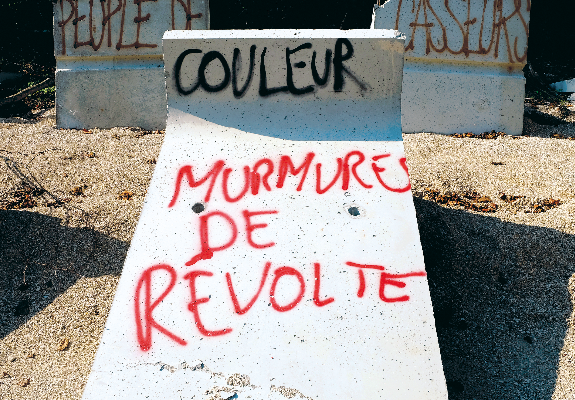 PEUPLE DE
CASSEURS
COULEUR
MURMURES
DE
RÉVOLTE